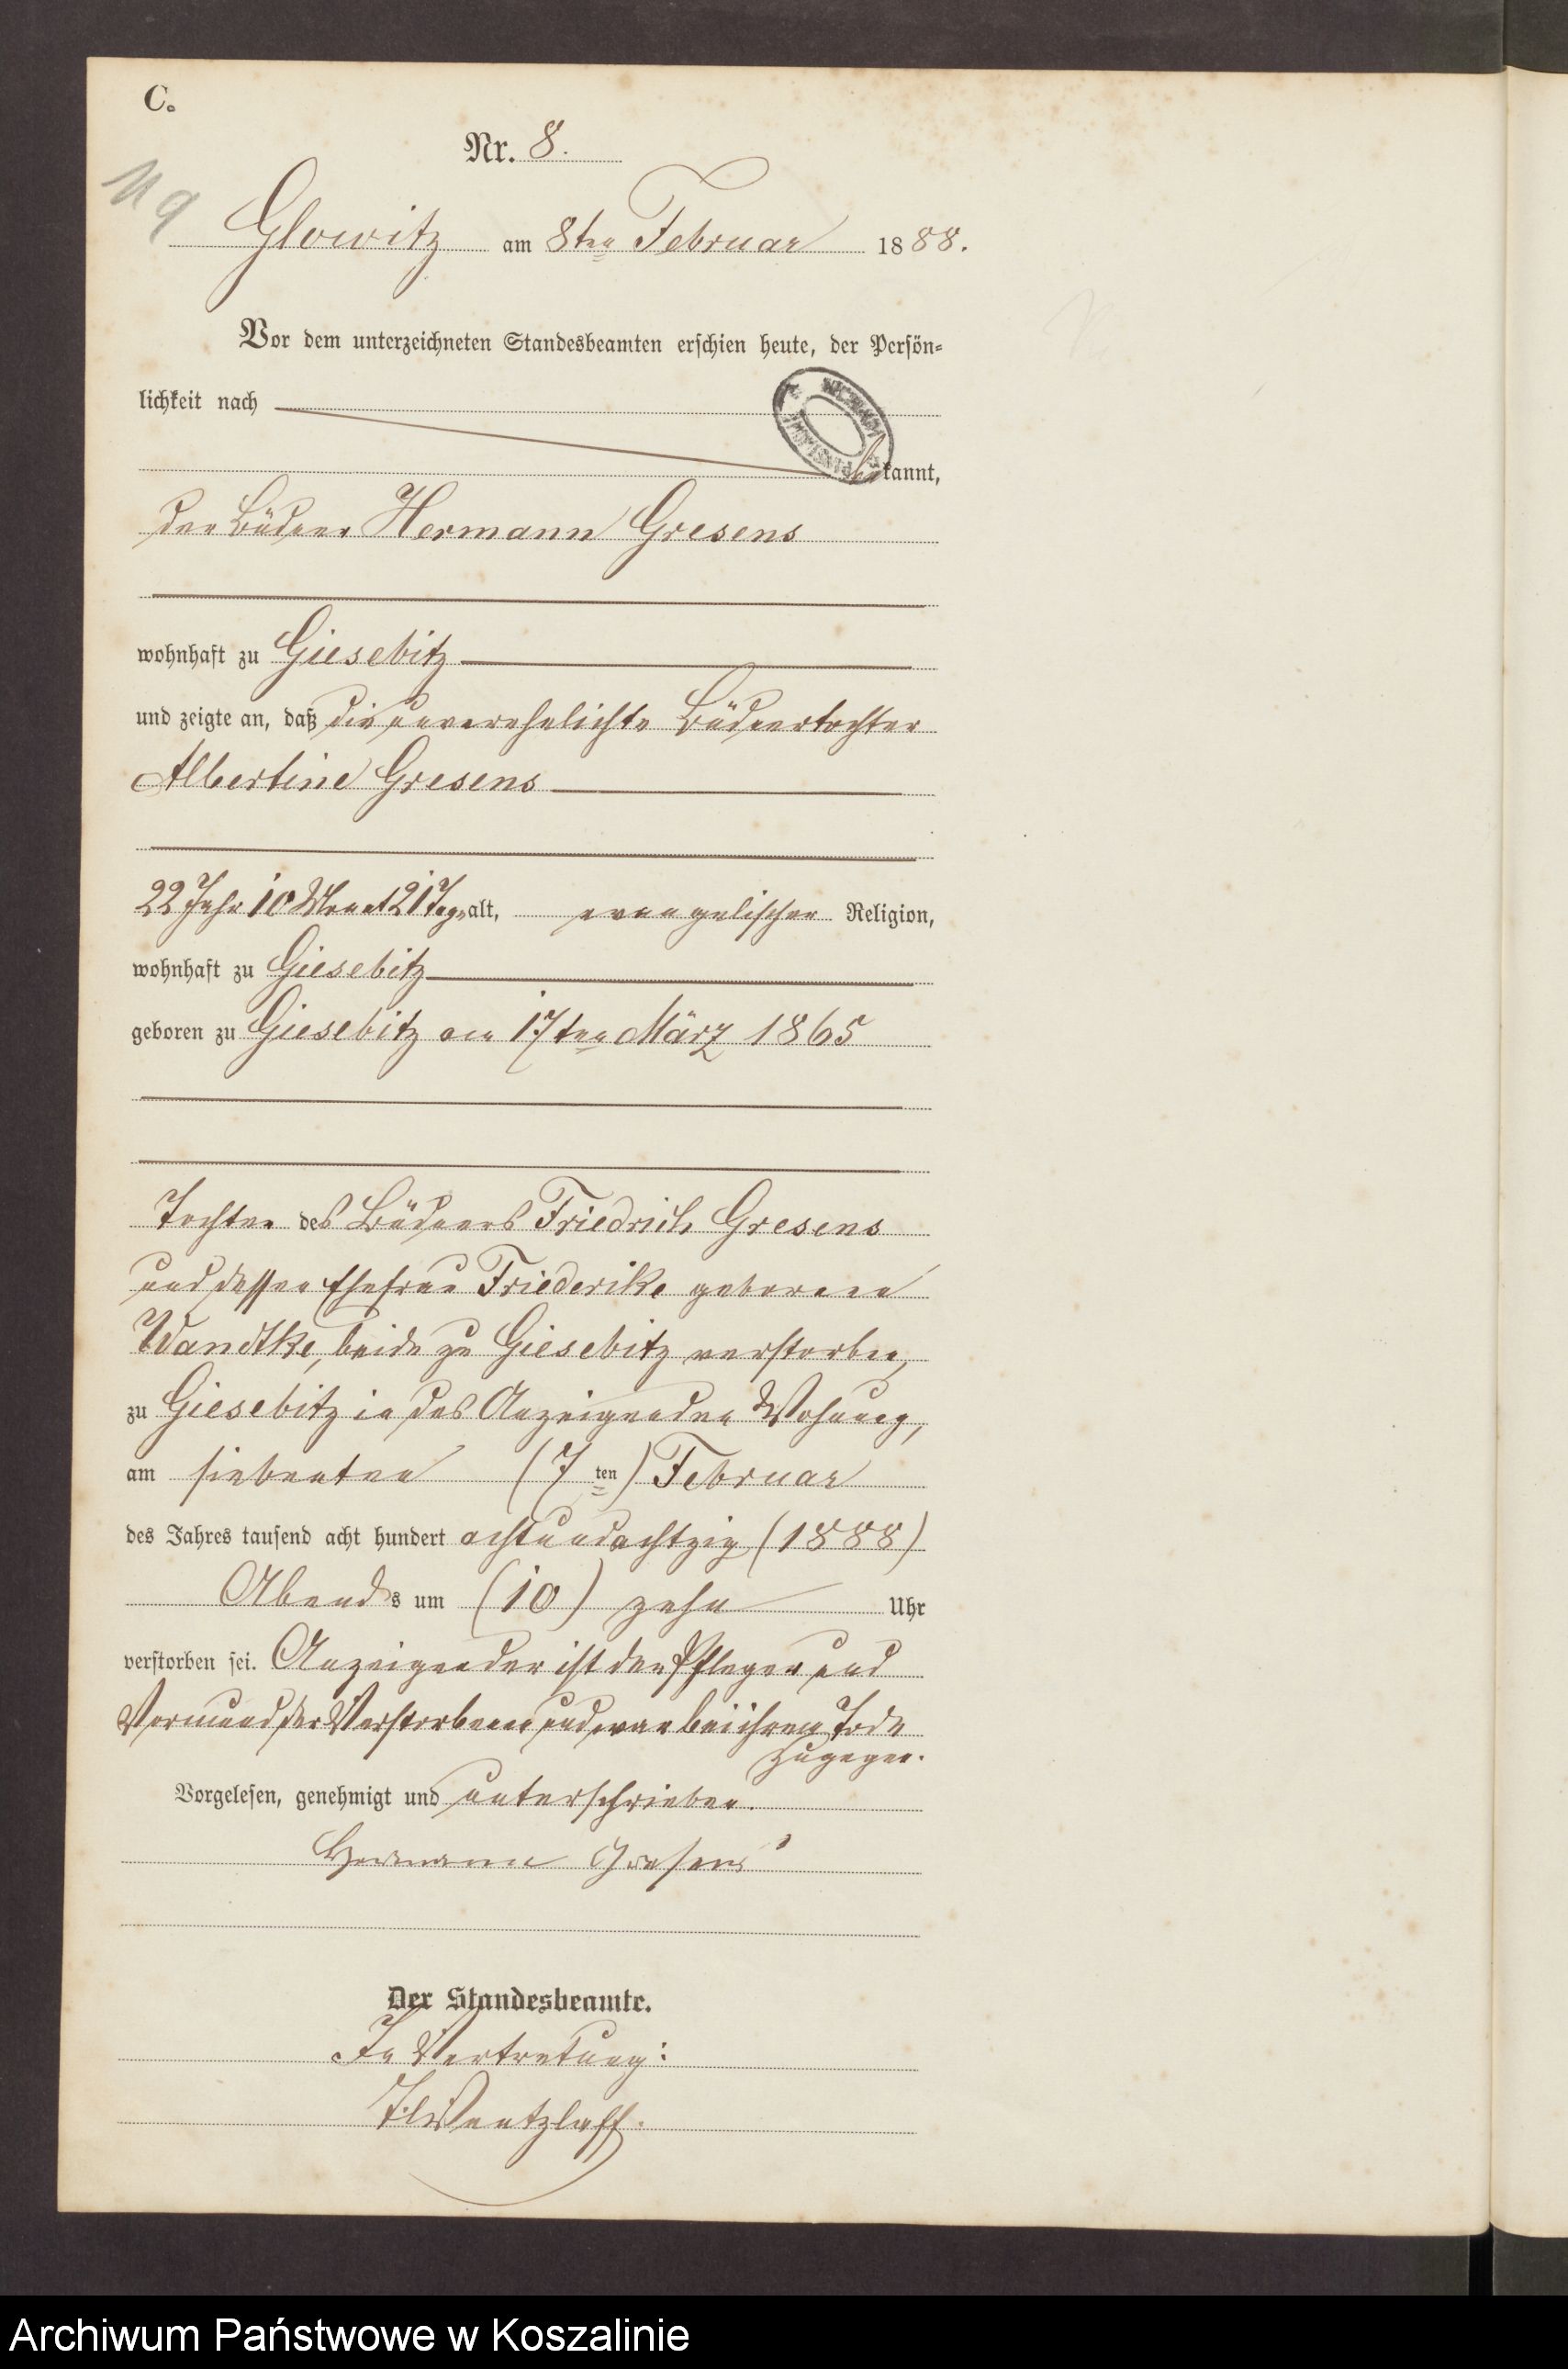 C.
Nr. 8.
119
Glowitz am 8ten Februar 1888.
Vor dem unterzeichneten Standesbeamten erschien heute, der Persön-
lichkeit nach
bekannt,
der Büdner Hermann Gresens
wohnhaft zu Giesebitz
und zeigte an, daß die unverehelichte Büdnertochter
Albertine Gresens
22 Jahr 10 Monat 21 Tage alt, evangelischer Religion,
wohnhaft zu Giesebitz
geboren zu Giesebitz am 17ten März 1865
Tochter des Büdners Friedrich Gresens
und dessen Ehefrau Friederike geborene
Wandtke, beide zu Giesebitz verstorben,
zu Giesebitz in des Anzeigenden Wohnung,
am siebenten (7ten) Februar
des Jahres tausend acht hundert achtundachtzig (1888)
Abends um (10) zehn Uhr
verstorben sei. Anzeigender ist der Pfleger und
Vormund der Verstorbenen und war bei ihrem Tode
zugegen.
Vorgelesen, genehmigt und unterschrieben.
Hermann Gresens
Der Standesbeamte.
In Vertretung:
Wentzlaff.
Archiwum Państwowe w Koszalinie